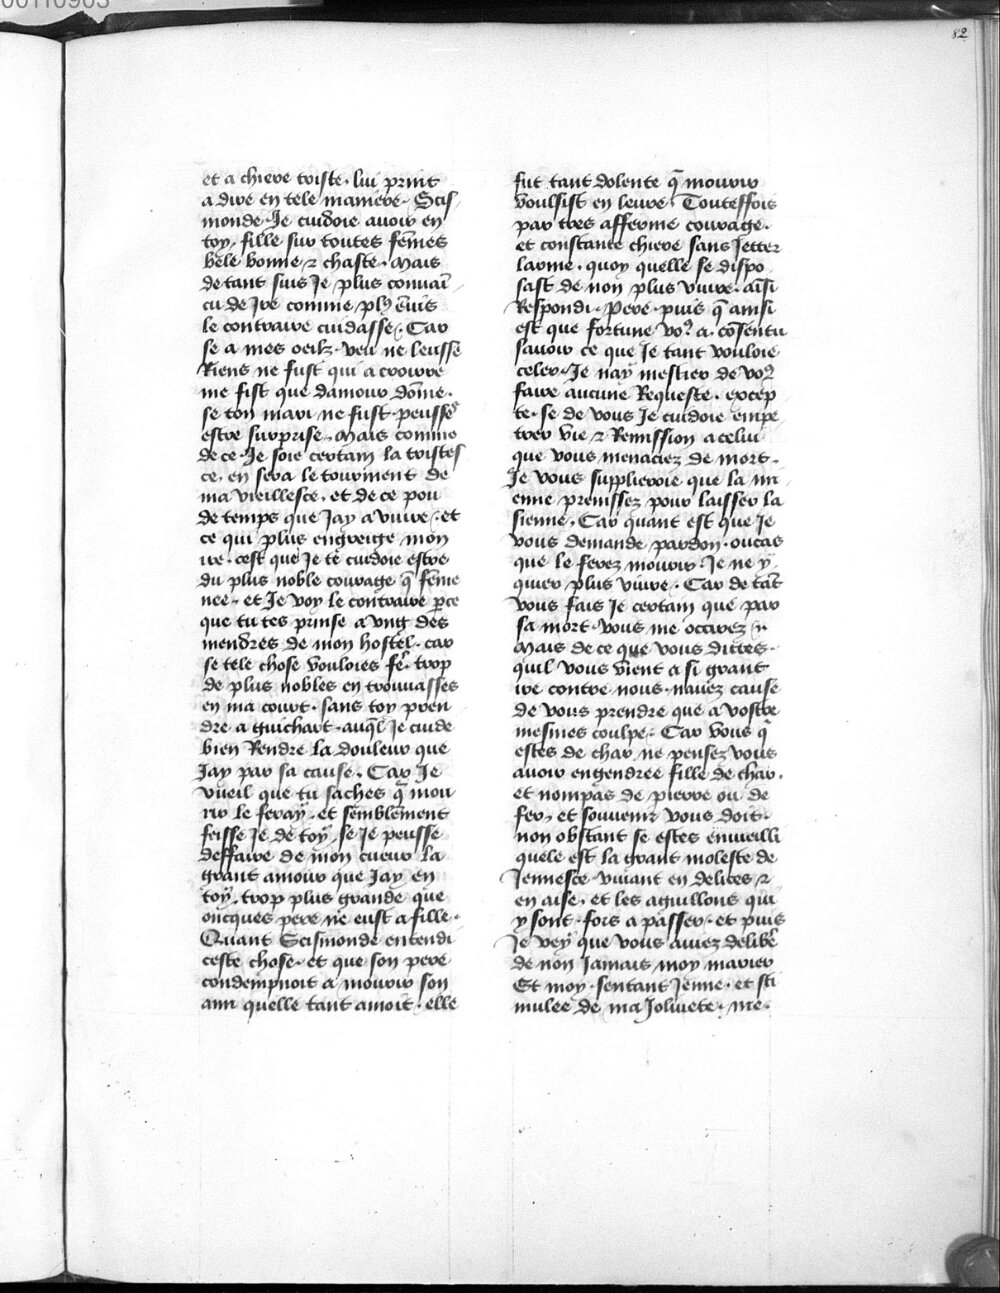 00110903
82
et a chiere triste. lui print
a dire en tele maniere. Scis
monde. Je cuidoie avoir en
toy. fille sur toutes fẽmes
bele bonne ⁊ chaste. Mais
de tant suis Je plus convaĩ
cu de Ire comme plꝰ ẽvis
le contraire cuidasse. Car
se a mes oeilz. veu ne leusse
Riens ne fust qui a croirre
me fist que damour dõme.
se ton mari ne fust. peusses
estre surprise. Mais comme
de ce. Je soie certain la tristes
ce. en sera le tourment de
ma vieillesce. et de ce pou
de temps que Jay a vivre. et
ce qui plus engreige mon
ire. cest que Je te cuidoie estre
du plus noble courage q̃ fẽme
nee. et Je voy le contraire p̱ce
que tu tes prinse a ung des
mendres de mon hostel. car
se tele chose vouloies fẽr. trop
de plus nobles en trouvasses
en ma court. sans toy pren
dre a guichart. auq̃l Je cuide
bien Rendre la douleur que
Jay par sa cause. Car Je
vueil que tu saches q̃ mou
rir le feray. et semblement
feisse Je de toy. se Je peusse
deffaire de mon cueur la
grant amour que Jay en
toy. trop plus grande que
oncques pere ne eust a fille.
Quant Scismonde entendi
ceste chose. et que son pere
condempnoit a mourir son
ami quelle tant amoit. elle
fut tant dolente q̃ mourir
voulsist en leure. Touteffois
par tres afferme courage.
et constante chiere sans Jetter
larme. quoy quelle se dispo
sast de non plus vivre. aĩsi
Respondi. Pere. puis q̃ ainsi
est que fortune voꝰ a. cõsentu
savoir ce que Je tant vouloie
celer. Je nay mestier de voꝰ
faire aucune Requeste. excep
te. se de vous Je cuidoie empe
trer vie ⁊ Remission a celui
que vous menaciez de mort.
Je vous supplieroie que la mi
enne prenissez pour laisser la
sienne. Car quant est que Je
vous demande pardon. ou cas
que le ferez mourir. Je ne y
quier plus vivre. Car de tãt
vous fais Je certain que par
sa mort. vous me occirez.
Mais de ce que vous dittes.
quil vous vient a si grant
ire contre nous. navez cause
de vous prendre que a vostre
mesmes coulpe. Car vous q̃
estes de char ne pensez vous
avoir engendree fille de char.
et nompas de pierre ou de
fer. et souvenir vous doit.
non obstant se estes envieilli
quele est la grant moleste de
Jennesce. vivant en delices ⁊
en aise. et les aguillons qui
y sont. fors a passer. et puis
Je vey que vous aviez delibẽ
de non Jamais moy marier
Et moy. sentant Jenne. et sti
mulee de ma Joliuete. me.